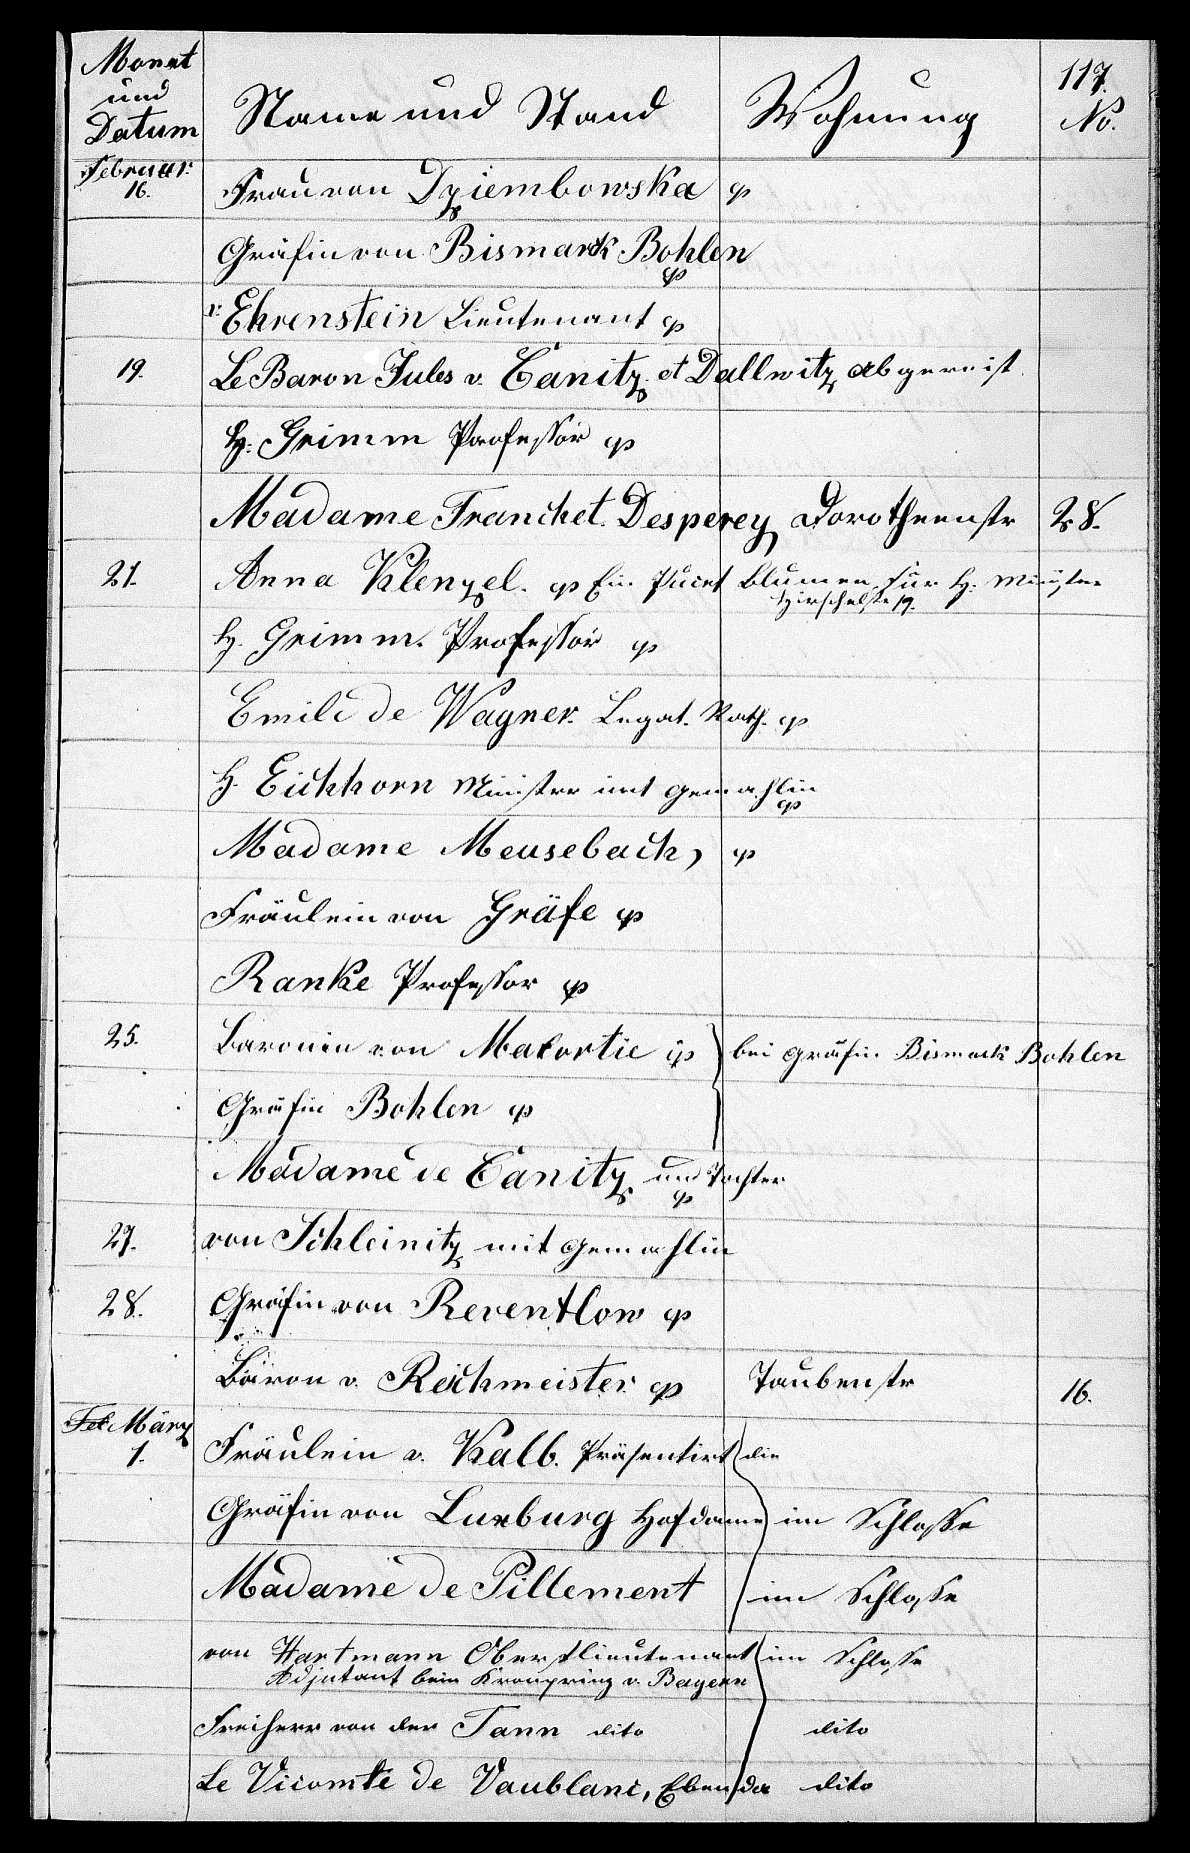 Monat
und
Datum
Name und Stand
Wohnung
117.
No.
Februar.
16.
Frau von Dziembowska p
Gräfin von Bismark-Bohlen
p
v. Ehrenstein Lieutenant p
19. Le Baron Jules v. Canitz et Dallwitz abgereist
H. Grimm Professor p
Madame Franchet Desperey Dorotheenstr 28.
21. Anna Klenzel. p Ein Pucet Blumen für H. Minister
Hirschelstr 19.
H. Grimm. Professor p
Emile de Wagner. Legat. Rath. p
H. Eichhorn Minister mit Gemahlin
p
Madame Meusebach, p
Fräulein von Gräfe p
Ranke Professor p
25. Baronin von Malortie p bei Gräfin Bismark Bohlen
Gräfin Bohlen p
Madame de Canitz und Tochter
p
27. von Schleinitz mit Gemahlin
28. Gräfin von Reventlow p
Baron v. Reichmeister p Taubenstr 16.
Feb März
1. Fräulein v. Kalb. Präsentirt die
Gräfin von Luxburg Hofdame im Schlosse
Madame de Pillement im Schlosse
von Hartmann Oberstlieutenant im Schlosse
Adjutant beim Kronprinz v. Bayern
Freiherr von der Tann dito dito
Le Vicomte de Vaublanc, Ebenda dito